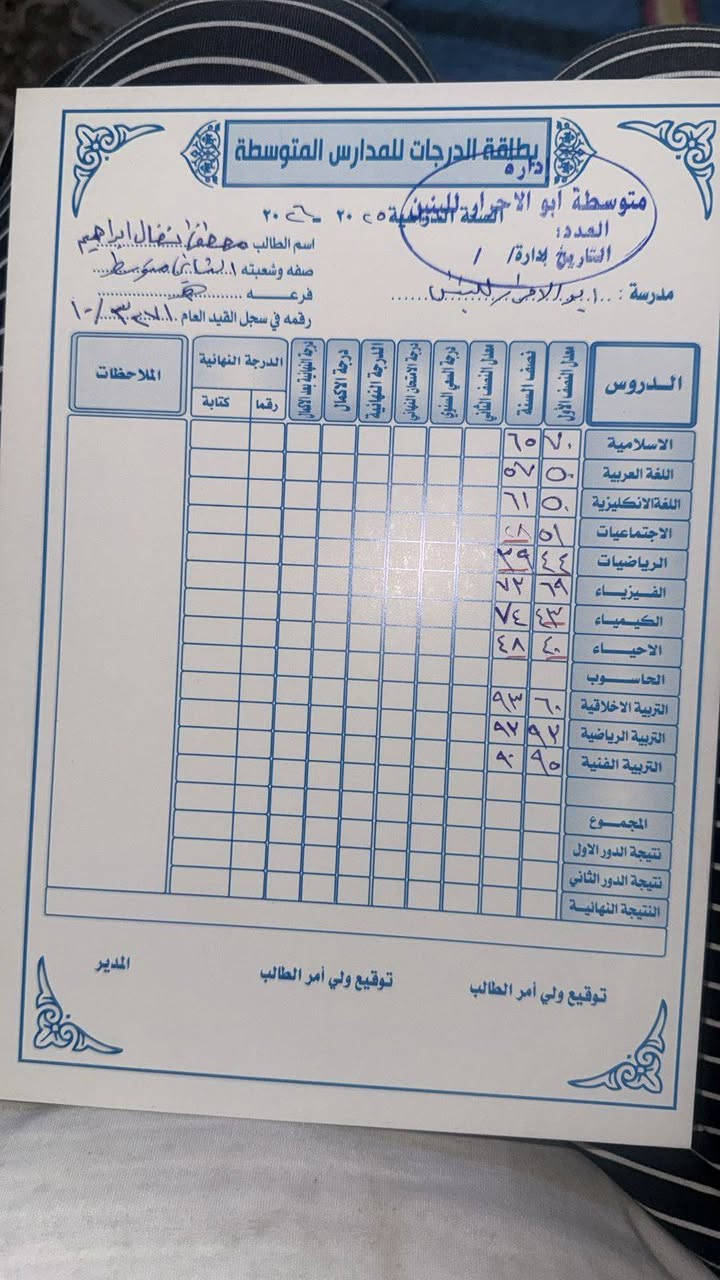 بطاقة الدرجات للمدارس المتوسطة
ادارة
متوسطة ابو الاحرار للبنين
العدد:
التاريخ / /
السنة الدراسية ٢٠٢٥ - ٢٠٢٦
اسم الطالب مصطفى ابراهيم
صفه وشعبته الثاني متوسط
مدرسة : ابو الاحرار للبنين
فرعه هـ
رقمه في سجل القيد العام
الدروس | معدل النصف الأول | نصف السنة | معدل النصف الثاني | درجة السعي السنوي | درجة الامتحان النهائي | الدرجة النهائية | درجة الاكمال | الدرجة النهائية بعد الاكمال | الدرجة النهائية | الملاحظات
رقما | كتابة
الاسلامية ٧٠ ٦٥
اللغة العربية ٥٠ ٥٧
اللغة الانكليزية ٥٠ ٦١
الاجتماعيات ٥١
الرياضيات ٤٤ ٣٩
الفيزياء ٦٩ ٧٢
الكيمياء ٤٣ ٧٤
الاحياء ٤٠ ٤٨
الحاسوب
التربية الاخلاقية ٦٠ ٩٣
التربية الرياضية ٩٢ ٩٢
التربية الفنية ٩٥ ٩٠
المجموع
نتيجة الدور الاول
نتيجة الدور الثاني
النتيجة النهائية
توقيع ولي أمر الطالب
توقيع ولي أمر الطالب
المدير